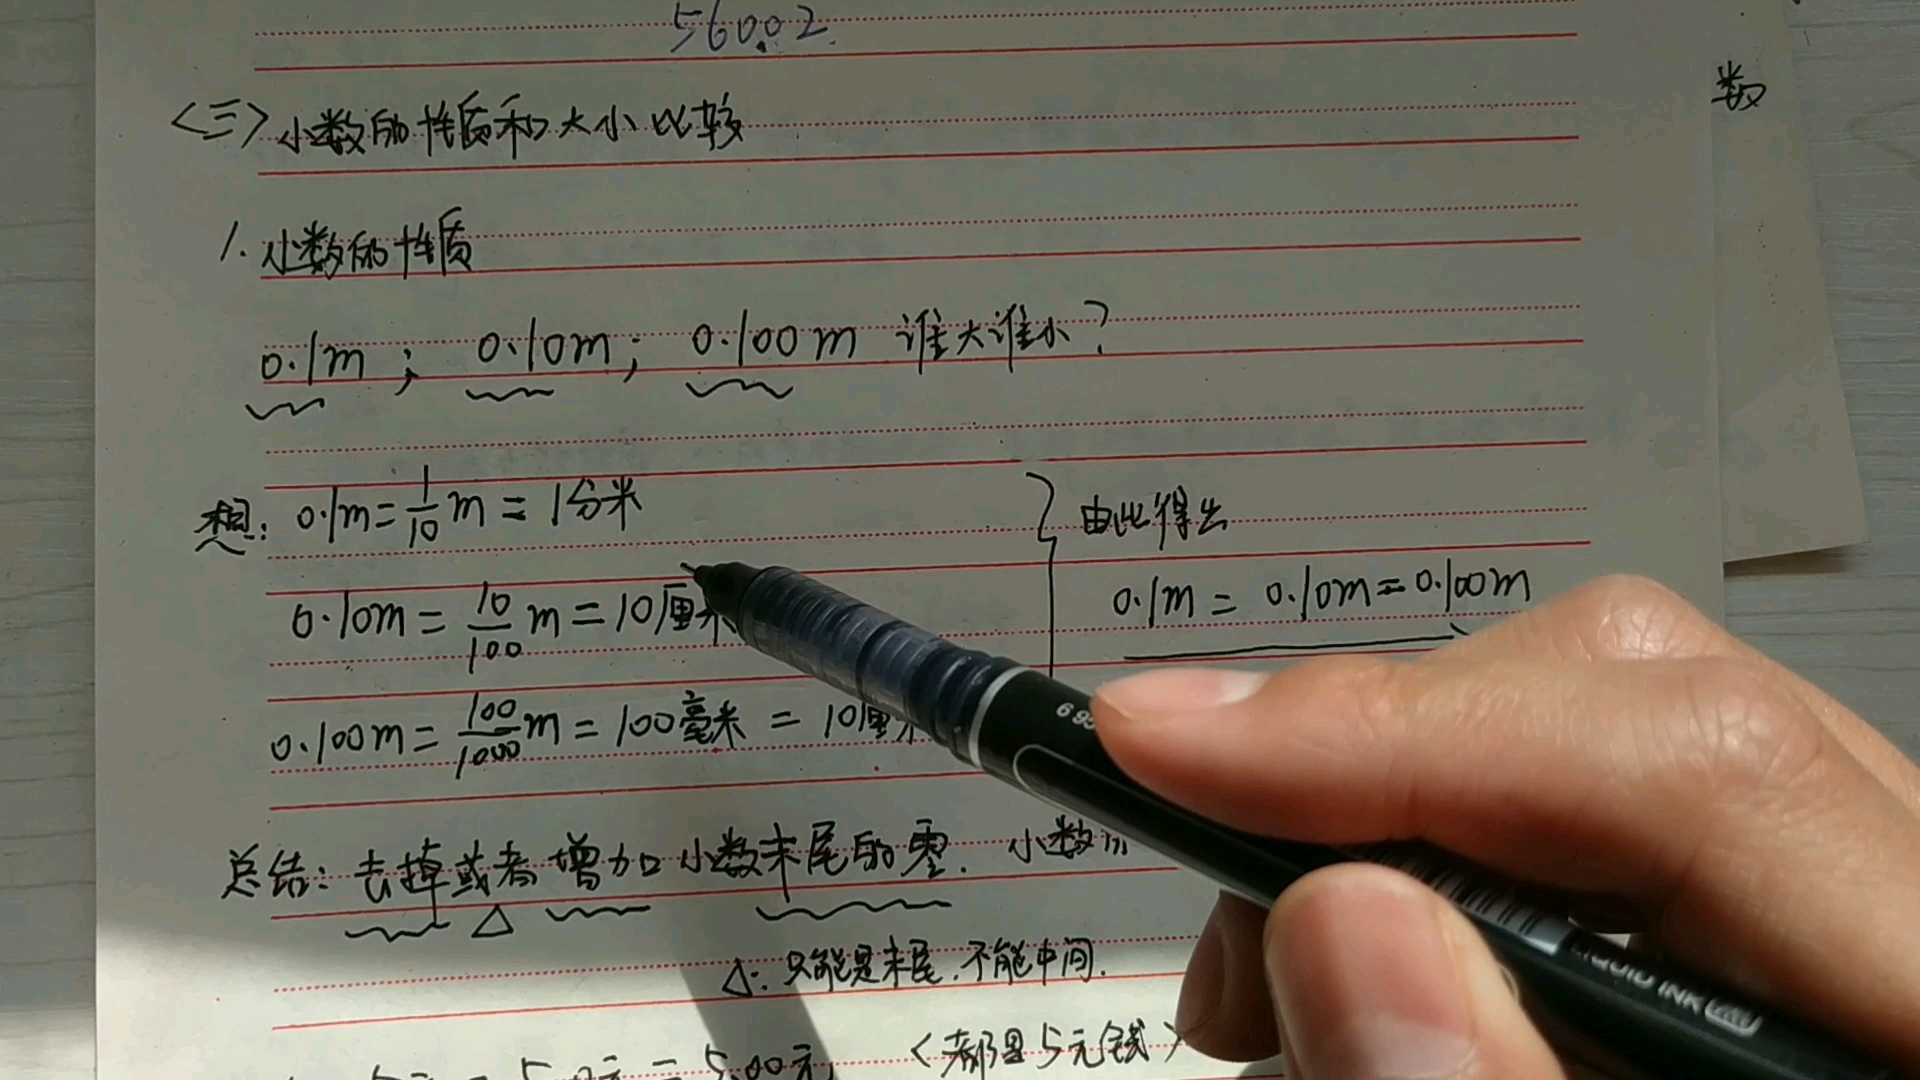 560.02
数
<三>小数的性质和大小比较
1.小数的性质
0.1m; 0.10m; 0.100m 谁大谁小?
想: 0.1m=1/10m=1分米
0.10m=10/100m=10厘米
0.100m=100/1000m=100毫米=10厘米
由此得出
0.1m=0.10m=0.100m
总结:去掉或者增加小数末尾的零.小数
△:只能是末尾.不能中间.
=5.00元 <都是5元钱>
6 95
LIQUID INK